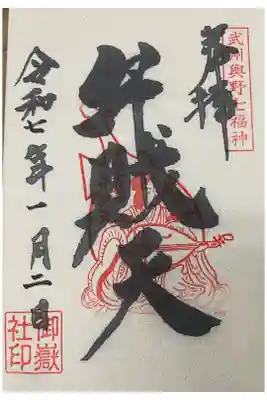 武州與野七福神
奉拝
弁財天
令和七年一月二日
御嶽社印